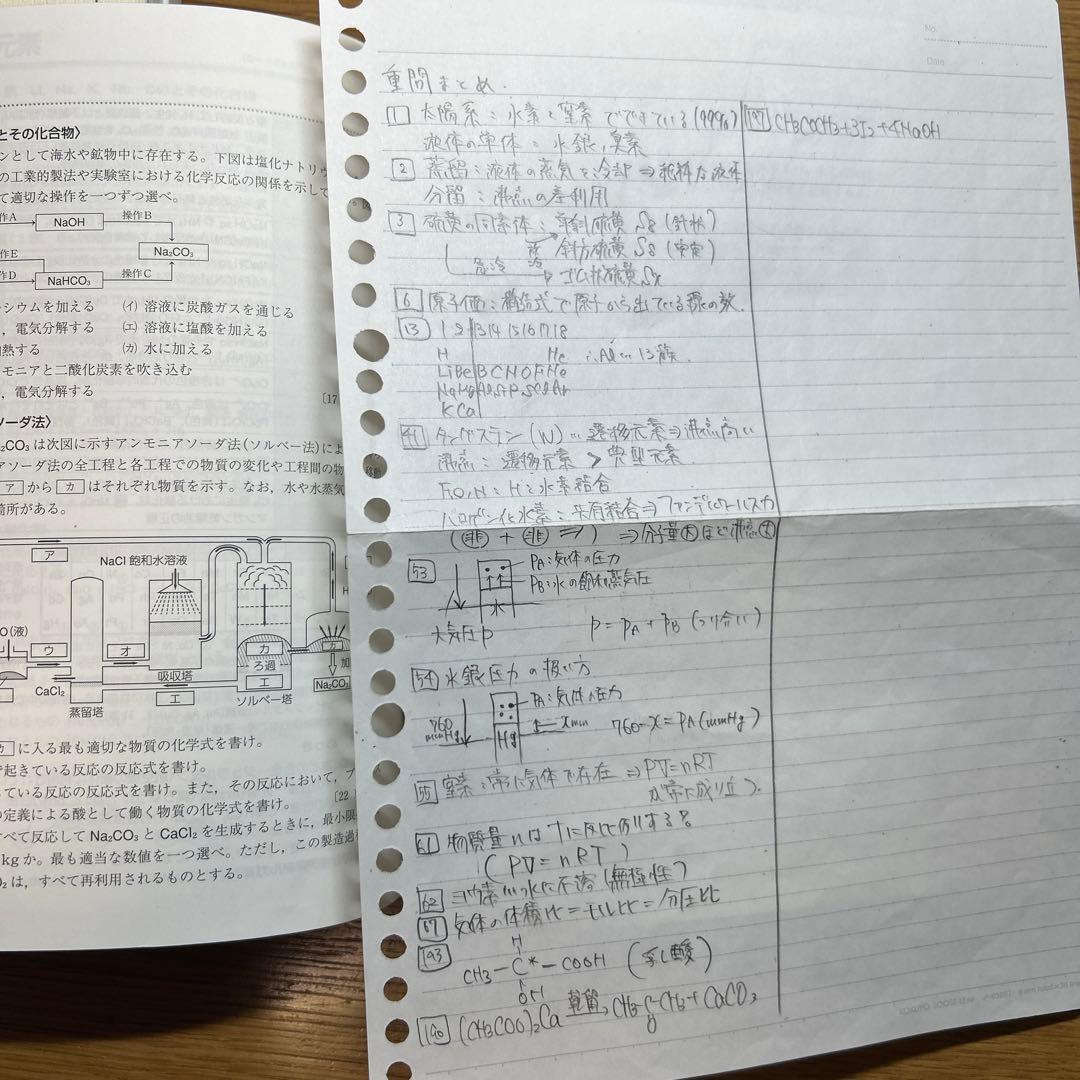 とその化合物〉
ンとして海水や鉱物中に存在する。下図は塩化ナトリウ
の工業的製法や実験室における化学反応の関係を示して
て適切な操作を一つずつ選べ。
作A
NaOH
操作B
Na₂CO₃
作E
作D
NaHCO₃
操作C
シウムを加える (イ) 溶液に炭酸ガスを通じる
，電気分解する (エ) 溶液に塩酸を加える
熱する (カ) 水に加える
モニアと二酸化炭素を吹き込む
，電気分解する
[17
ソーダ法〉
₂CO₃ は次図に示すアンモニアソーダ法(ソルベー法)によ
アソーダ法の全工程と各工程での物質の変化や工程間の物
ア から カ はそれぞれ物質を示す。なお，水や水蒸気
箇所がある。
ア
NaCl 飽和水溶液
O(液)
ウ
オ
カ
カ
ろ過
加
CaCl₂
吸収塔
エ
エ
Na₂CO₃
蒸留塔
ソルベー塔
カ に入る最も適切な物質の化学式を書け。
で起きている反応の反応式を書け。
ている反応の反応式を書け。また，その反応において，ブ
の定義による酸として働く物質の化学式を書け。
[22
すべて反応して Na₂CO₃ と CaCl₂ を生成するときに，最小限
kg か。最も適当な数値を一つ選べ。ただし，この製造過
₂ は，すべて再利用されるものとする。
No.
Date
重問まとめ.
1 太陽系：水素と窒素でできている(99%)
液体の単体：水銀，臭素
2 蒸留：液体の蒸気を冷却⇒純粋な液体
分留：沸点の差利用
3 硫黄の同素体：単斜硫黄 S8 (針状)
斜方硫黄 S8 (安定)
急冷 → ゴム状硫黄 Sx
6 原子価：構造式で原子から出ている線の数.
13 1 2 13 14 15 16 17 18
H He ∴Al…13族.
Li Be B C N O F Ne
Na Mg Al Si P S Cl Ar
K Ca
41 タングステン(W)…遷移元素⇒沸点高い
沸点：遷移元素 > 典型元素.
F,O,N：Hと水素結合
ハロゲン化水素：共有結合⇒ファンデルワールス力
(非 + 非 ⇒) ⇒分子量大ほど沸点大
53 PA：気体の圧力
PB：水の飽和蒸気圧
水
大気圧P
P = PA + PB (つり合い)
54 水銀圧力の扱い方
PA：気体の圧力
760 mmHg
x mm
Hg
760-x = PA (mmHg)
55 窒素：常に気体で存在 ⇒ PV=nRT
が常に成り立つ.
61 物質量nはTに反比例する。
(PV=nRT)
62 ヨウ素…水に不溶(無極性)
67 気体の体積比=モル比=分圧比
193 H
CH3-C*-COOH (乳酸)
OH
190 (CH3COO)2Ca 乾留→ CH3-C-CH3 + CaCO3
O
197 CH3COCH3+3I2+4NaOH